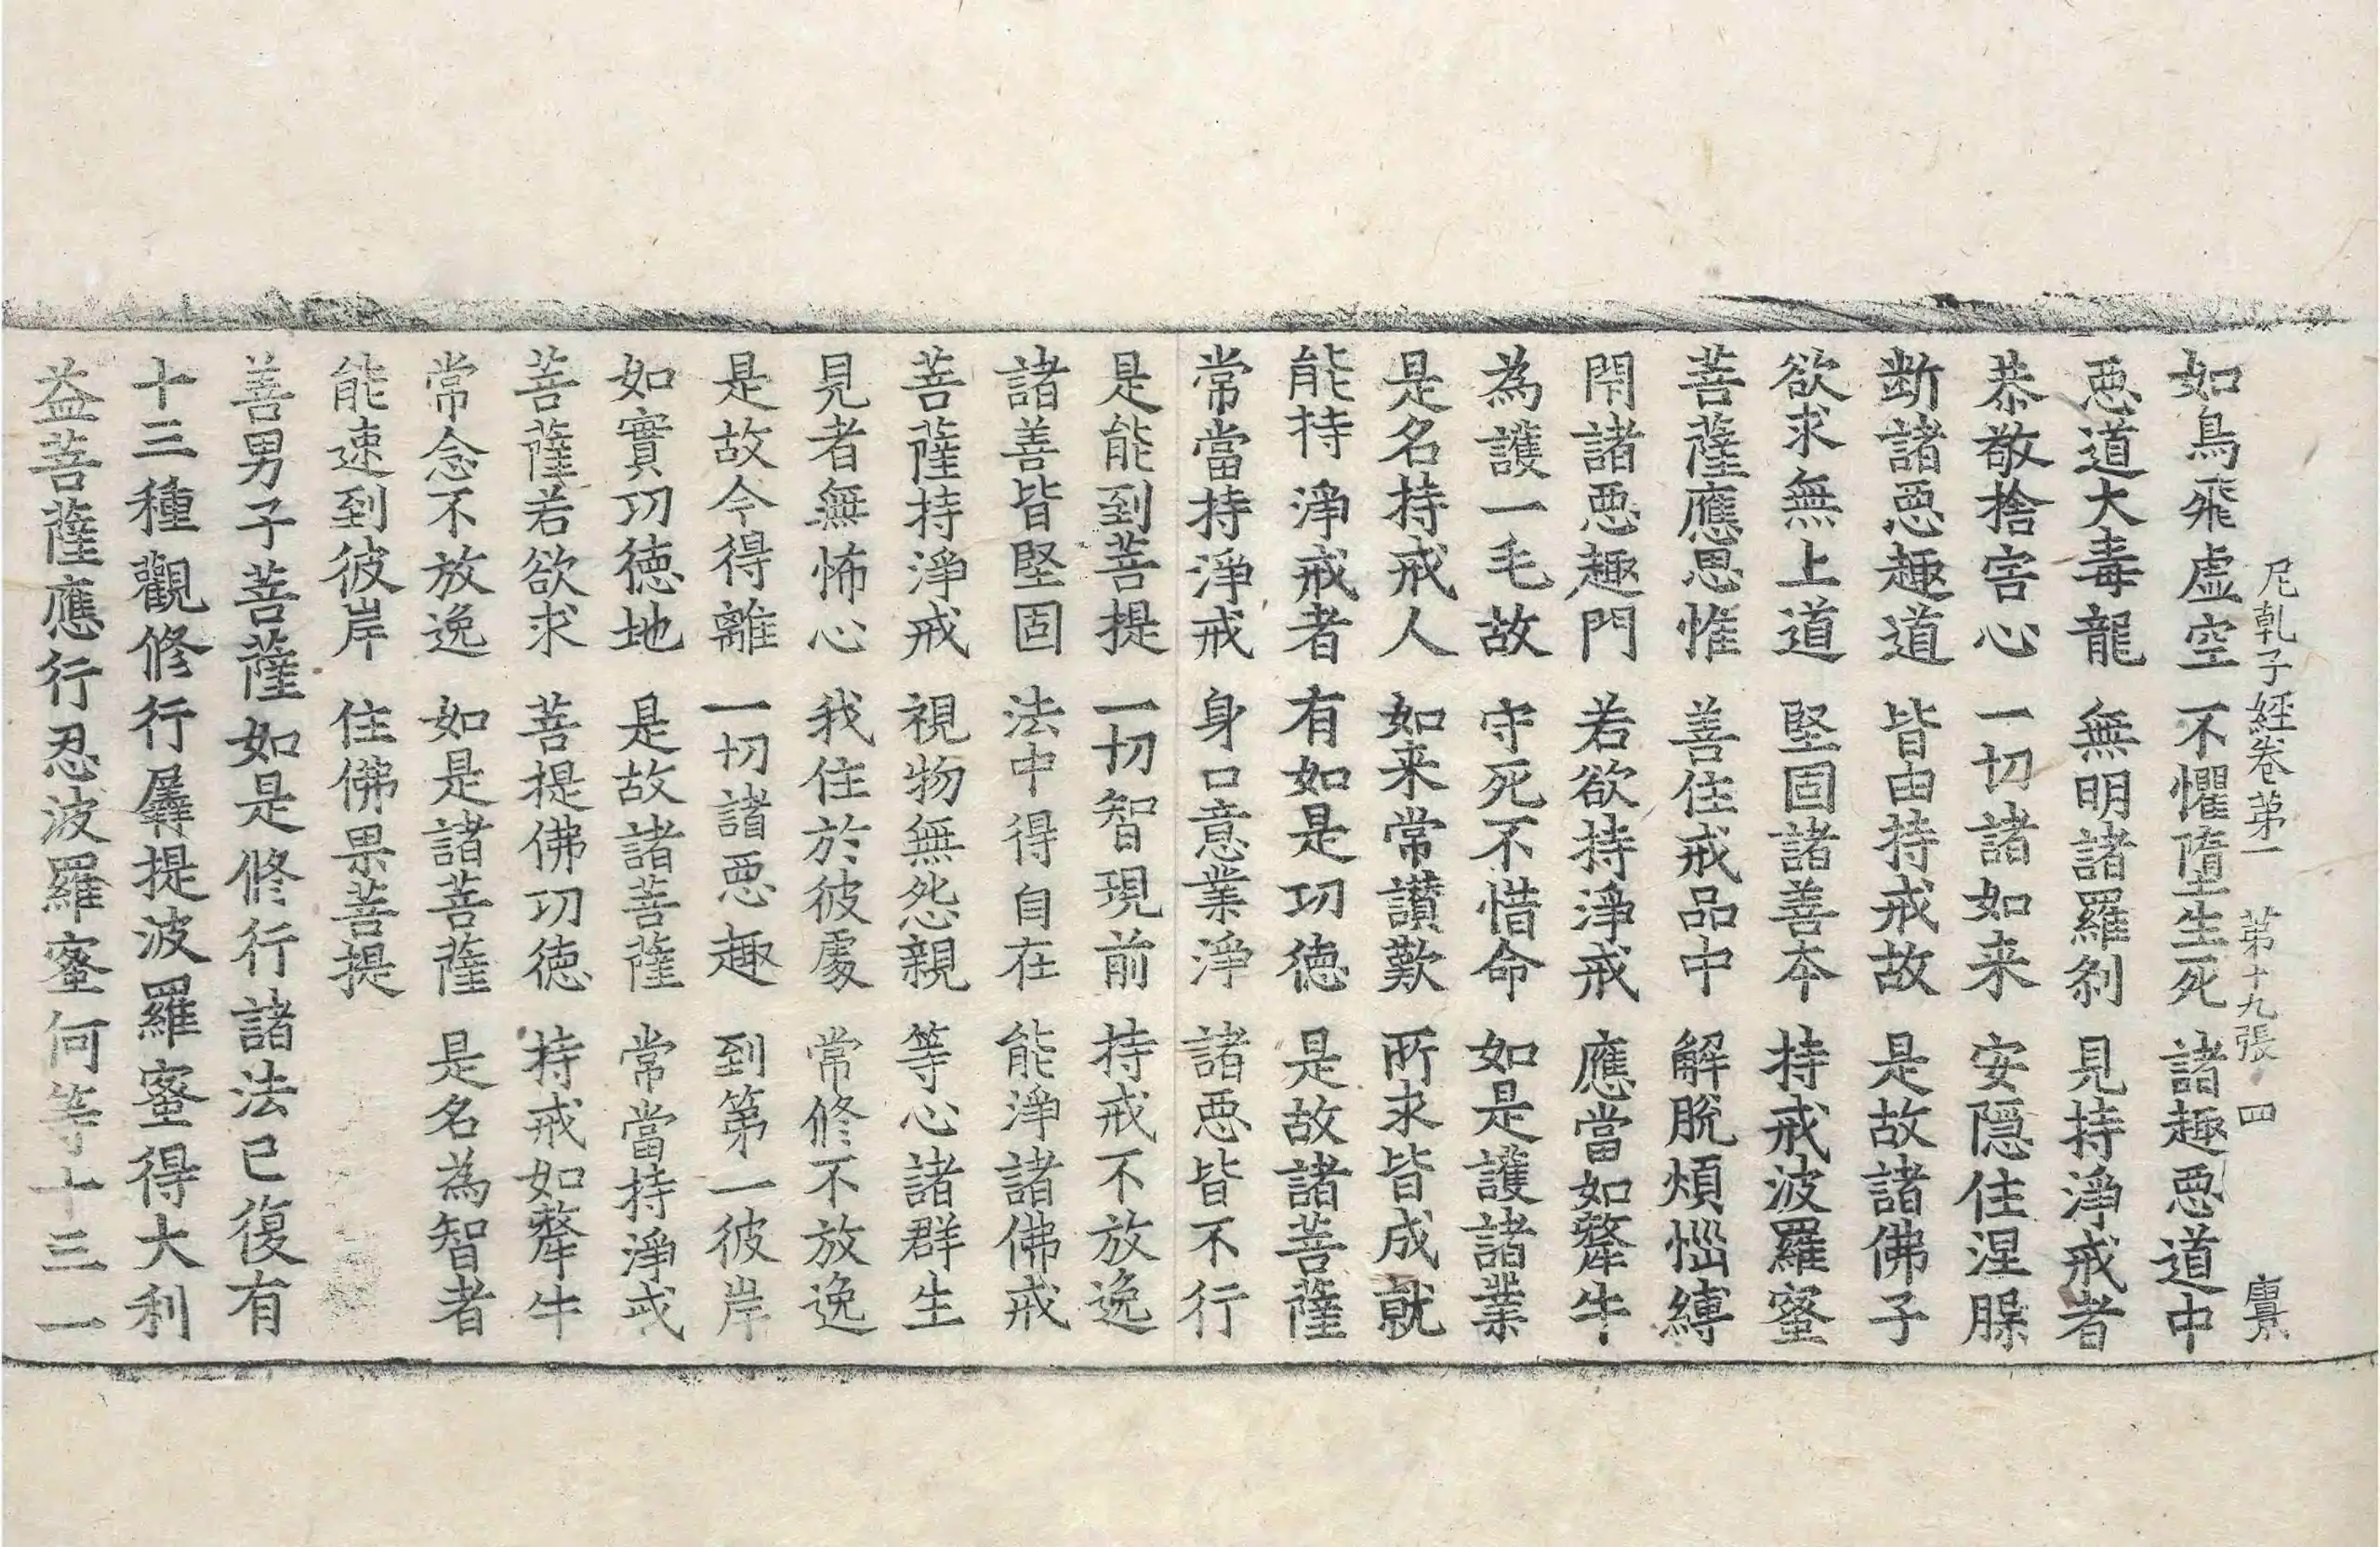 尼乹子經卷第一 第十九張 四
如鳥飛虛空 不懼墮生死 諸趣惡道中
惡道大毒龍 無明諸羅刹 見持淨戒者
恭敬捨害心 一切諸如来 安隱住涅槃
断諸惡趣道 皆由持戒故 是故諸佛子
欲求無上道 堅固諸善本 持戒波羅蜜
菩薩應思惟 善住戒品中 解脫煩惱縛
閇諸惡趣門 若欲持淨戒 應當如犛牛
為護一毛故 守死不惜命 如是護諸業
是名持戒人 如来常讃歎 所求皆成就
能持淨戒者 有如是功德 是故諸菩薩
常當持淨戒 身口意業淨 諸惡皆不行
是能到菩提 一切智現前 持戒不放逸
諸善皆堅固 法中得自在 能淨諸佛戒
菩薩持淨戒 視物無怨親 等心諸群生
見者無怖心 我住於彼處 常修不放逸
是故今得離 一切諸惡趣 到第一彼岸
如實功德地 是故諸菩薩 常當持淨戒
菩薩若欲求 菩提佛功德 持戒如犛牛
常念不放逸 如是諸菩薩 是名為智者
能速到彼岸 住佛果菩提
善男子菩薩如是修行諸法已復有
十三種觀修行羼提波羅蜜得大利
益菩薩應行忍波羅蜜何等十三一